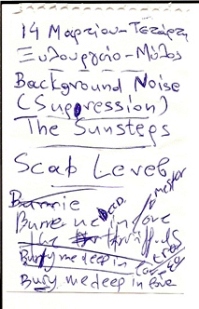 14 Μαρτίου-Τετάρτη
Ξυλουργείο-Μύλος
Background Noise
(Supression)
The Sunsteps
Scab Level
Bannie
Bury me in love
the
Bury me deep in love
Bury me deep in love